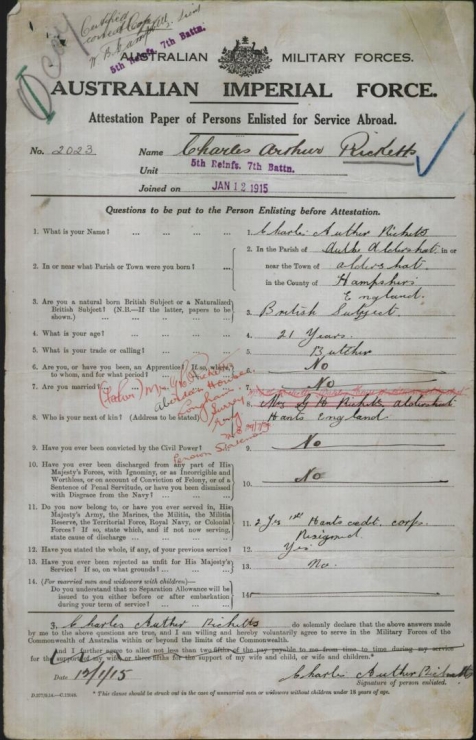 Copy
Certified
correct Copy
AUSTRALIAN MILITARY FORCES.
5th Reinfs. 7th Battn.
AUSTRALIAN IMPERIAL FORCE.
Attestation Paper of Persons Enlisted for Service Abroad.
No. 2023 Name Charles Arthur Ricketts
Unit 5th Reinfs. 7th Battn.
Joined on JAN 12 1915
Questions to be put to the Person Enlisting before Attestation.
1. What is your Name? ... ... ... 1. Charles Auther Ricketts
2. In or near what Parish or Town were you born? ... 2. In the Parish of Aldershot in or
near the Town of aldershot
in the County of Hampshire
England.
3. Are you a natural born British Subject or a Naturalized
British Subject? (N.B.—If the latter, papers to be
shown.) ... ... 3. British Subject.
4. What is your age? ... ... ... 4. 21 Years.
5. What is your trade or calling? ... ... 5. Butcher
6. Are you, or have you been, an Apprentice? If so, where,
to whom, and for what period? ... ... 6. No
7. Are you married? ... 7. No
8. Who is your next of kin? (Address to be stated) 8. Mrs G H Ricketts aldershot
Hants England
9. Have you ever been convicted by the Civil Power? ... 9. No
10. Have you ever been discharged from any part of His
Majesty's Forces, with Ignominy, or as Incorrigible and
Worthless, or on account of Conviction of Felony, or of a
Sentence of Penal Servitude, or have you been dismissed
with Disgrace from the Navy? ... ... 10. No
11. Do you now belong to, or have you ever served in, His
Majesty's Army, the Marines, the Militia, the Militia
Reserve, the Territorial Force, Royal Navy, or Colonial
Forces? If so, state which, and if not now serving,
state cause of discharge ... ... 11. 2 Yrs 1st Hants cadt. corps.
Resigned
12. Have you stated the whole, if any, of your previous service? 12. Yes
13. Have you ever been rejected as unfit for His Majesty's
Service? If so, on what grounds? ... ... 13. No.
14. (For married men and widowers with children)—
Do you understand that no Separation Allowance will be
issued to you either before or after embarkation
during your term of service? ... ... 14.
I, Charles Auther Ricketts do solemnly declare that the above answers made
by me to the above questions are true, and I am willing and hereby voluntarily agree to serve in the Military Forces of the
Commonwealth of Australia within or beyond the limits of the Commonwealth.
And I further agree to allot not less than two-fifths of the pay payable to me from time to time during my service
for the support of my wife and children.*
Date 12/1/15 Charles Auther Ricketts
Signature of person enlisted.
* This clause should be struck out in the case of unmarried men or widowers without children under 18 years of age.